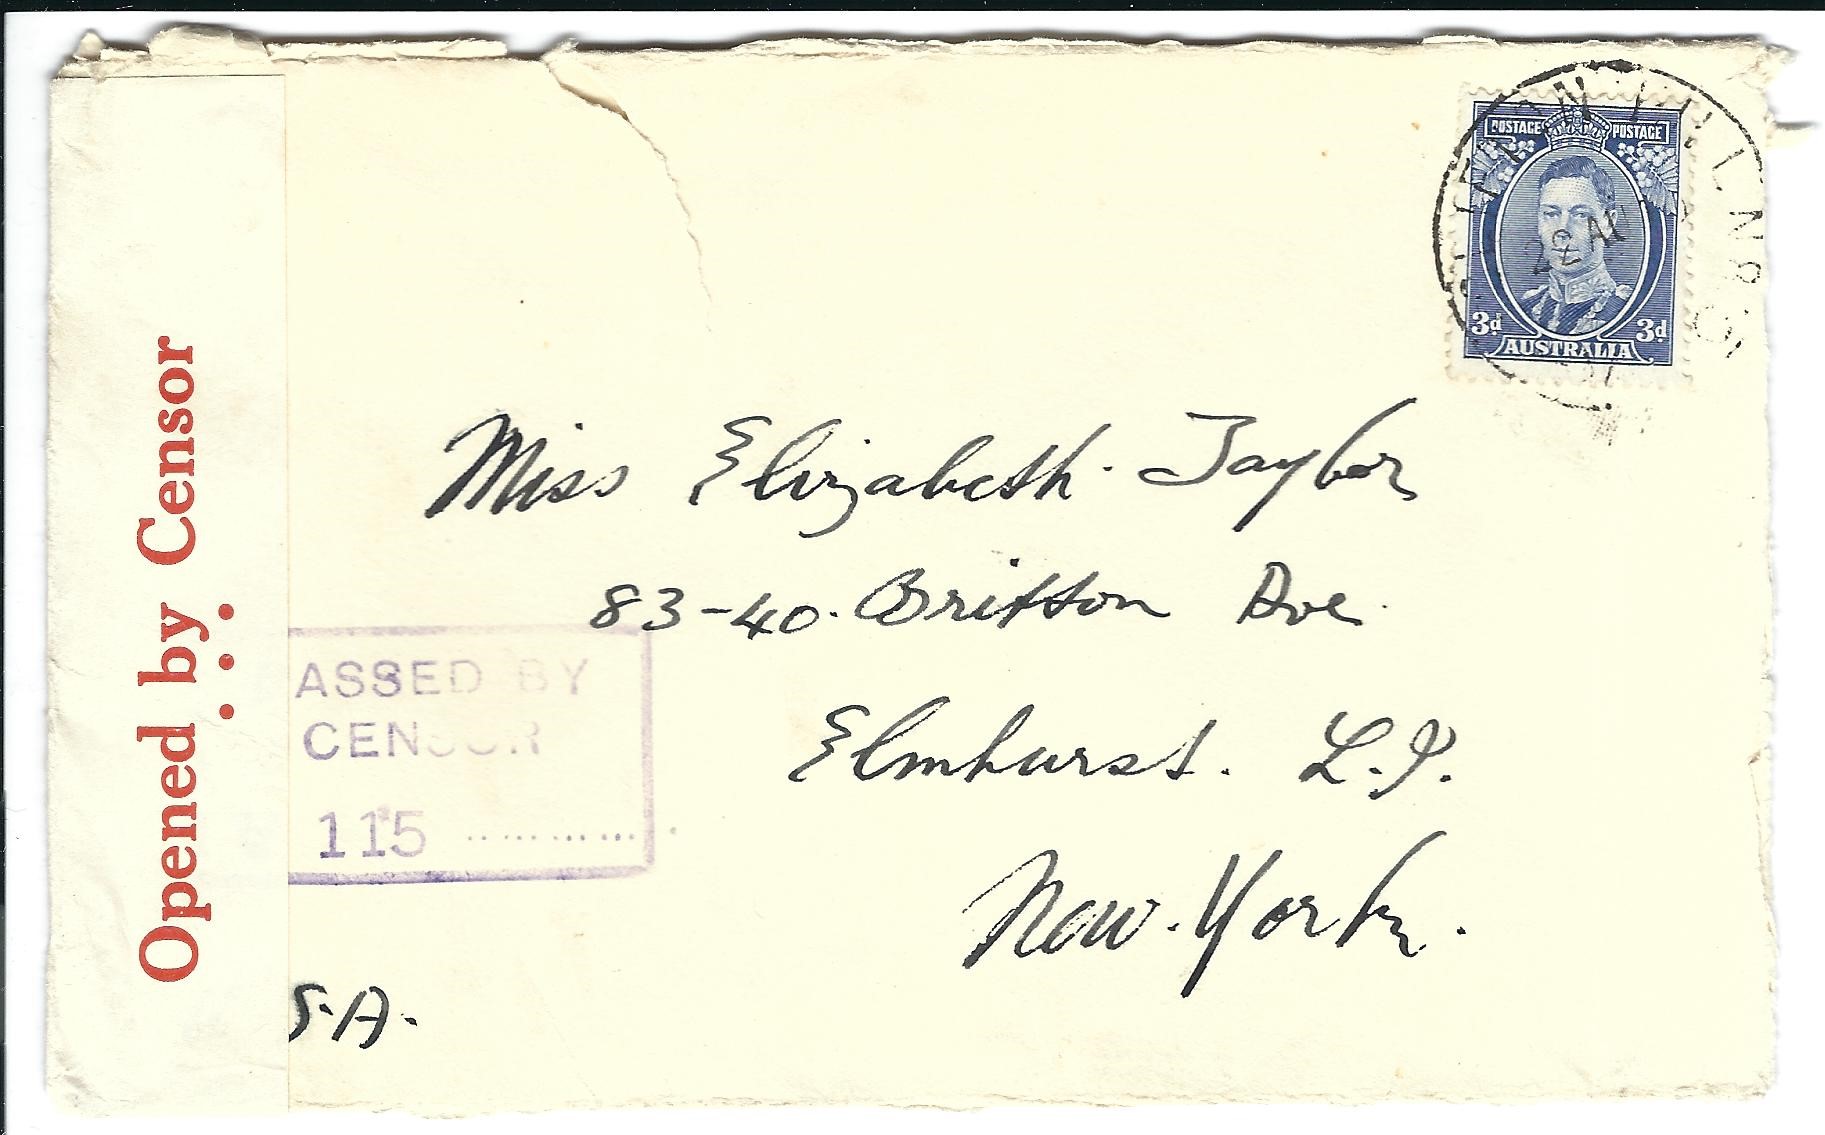 Opened by Censor
POSTAGE POSTAGE
3d 3d
AUSTRALIA
Miss Elizabeth Taylor
83-40. Britton Ave.
Elmhurst. L.I.
New. York.
ASSED BY
CENSOR
115 ............
S.A.